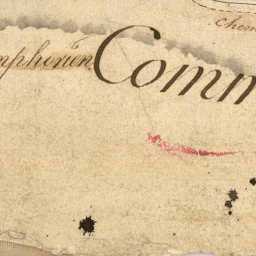 Chem
mpherien Comm